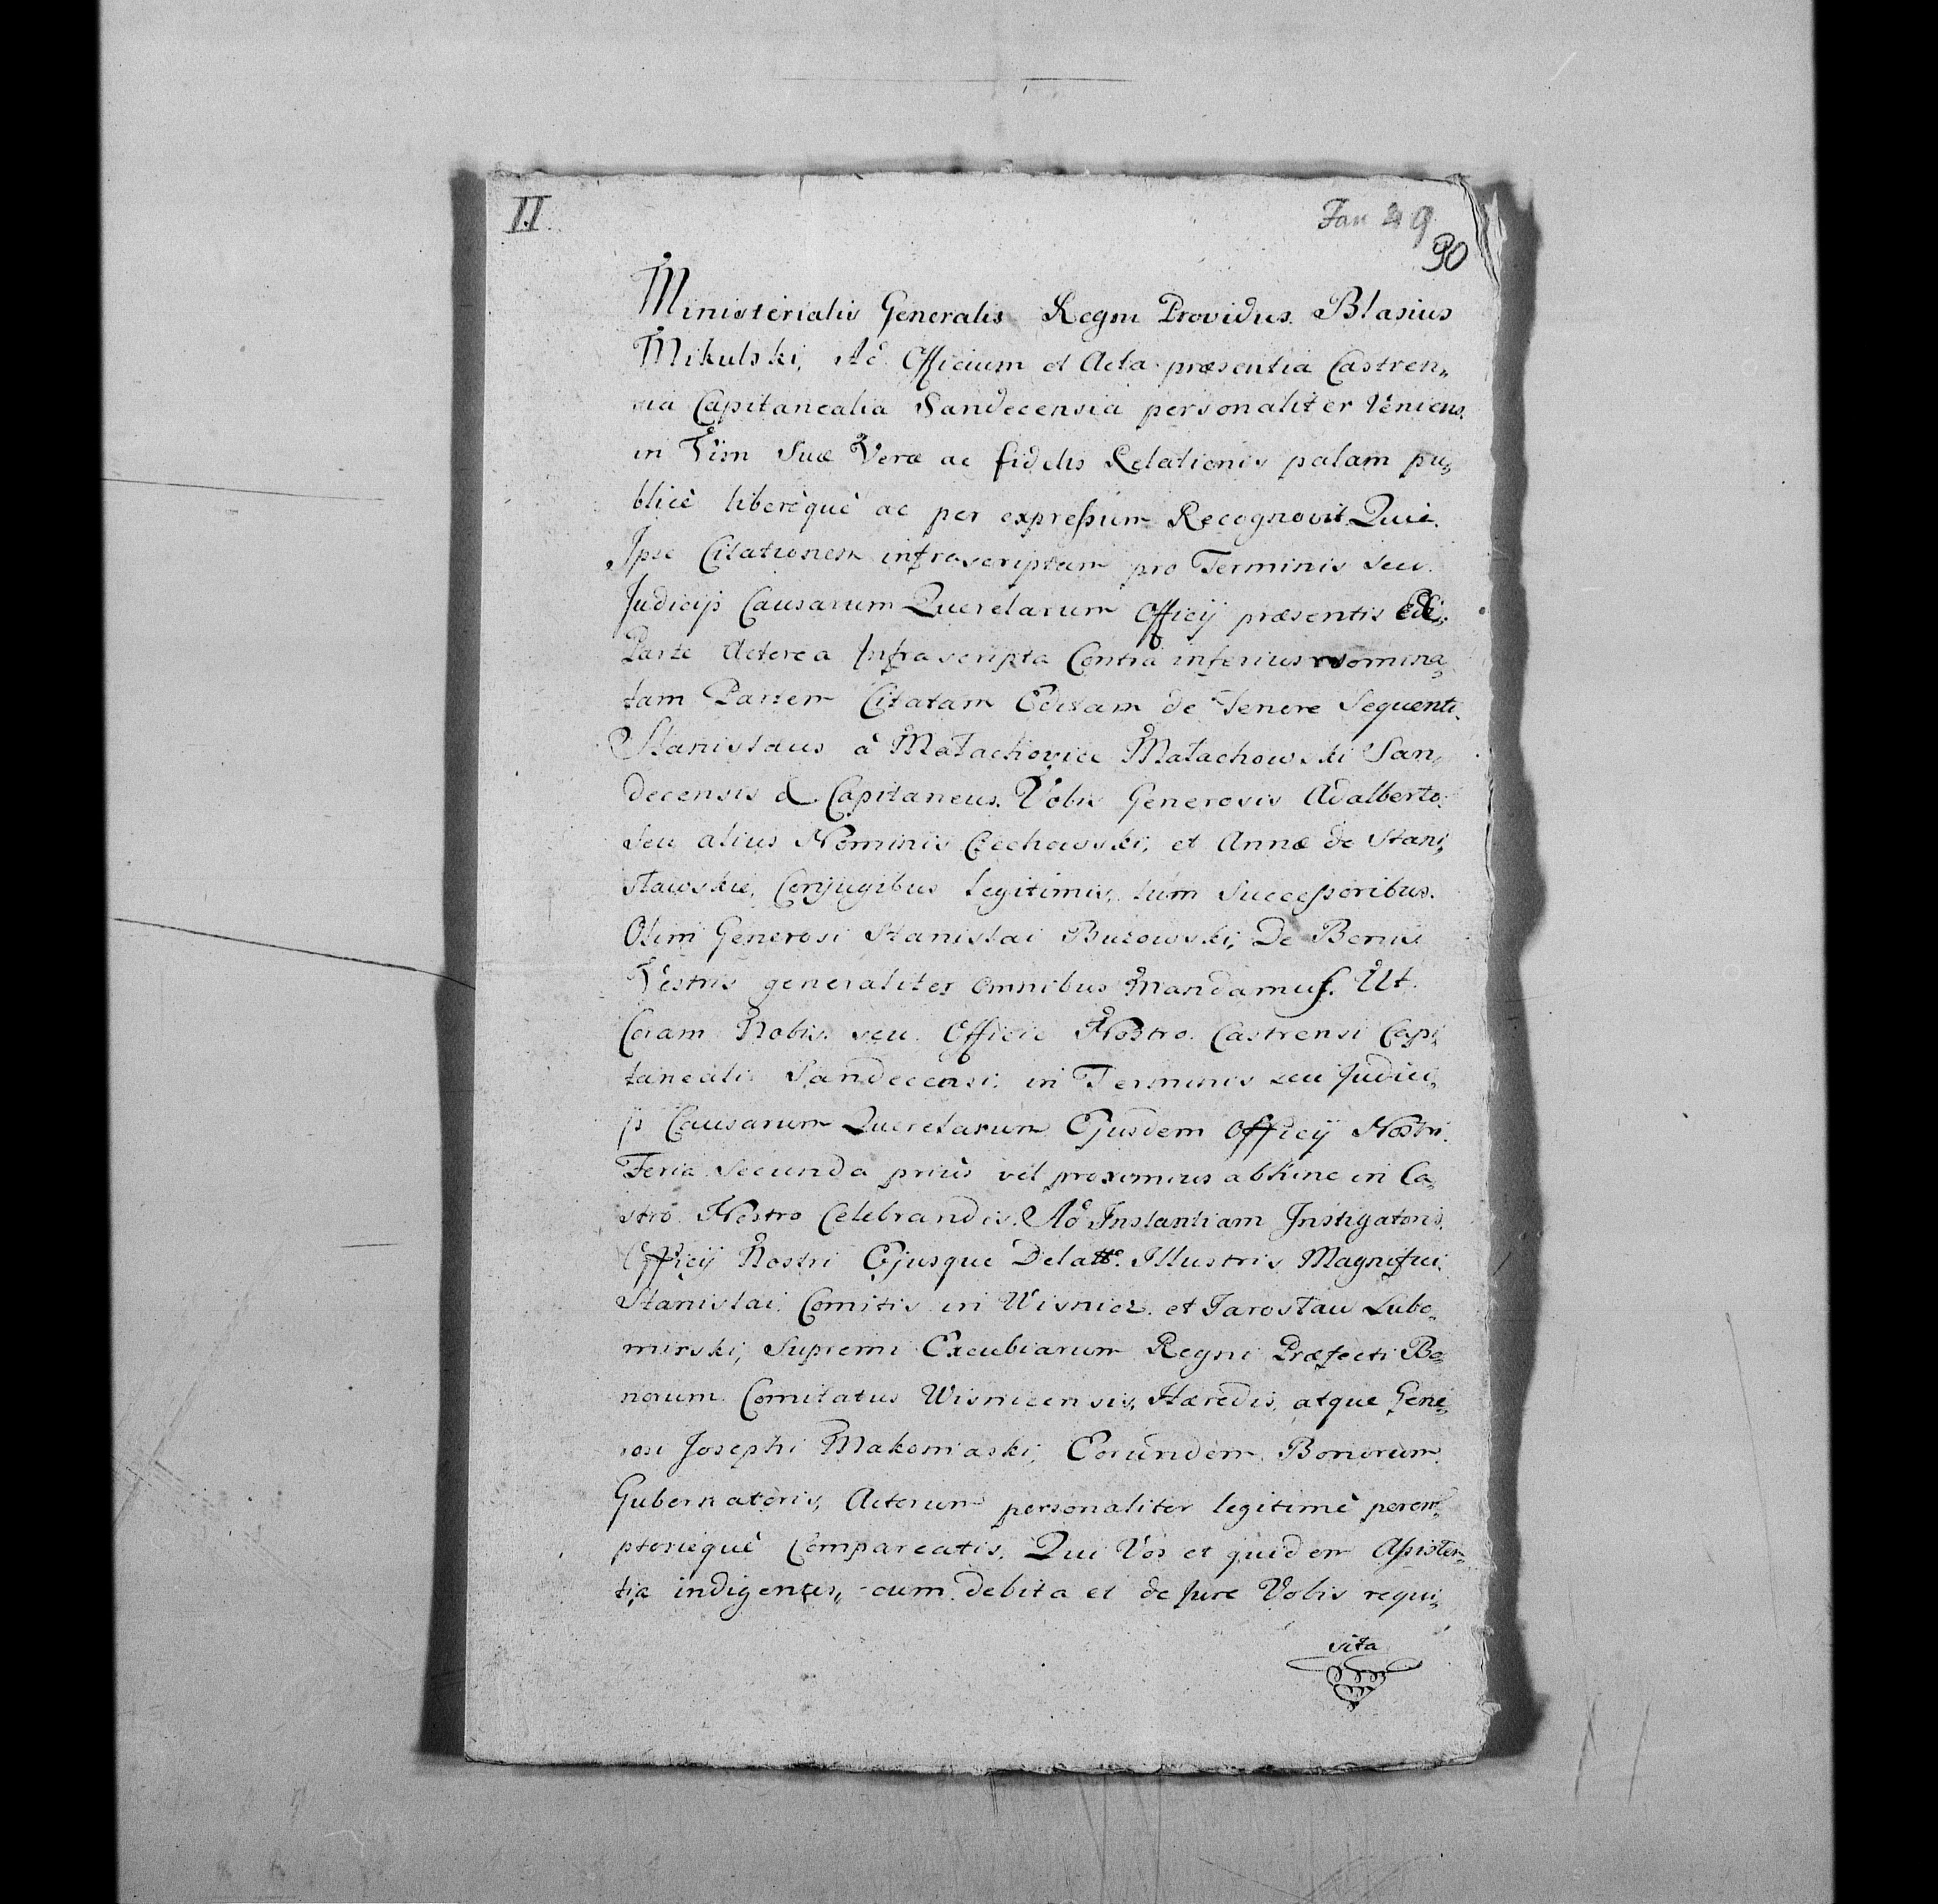 II
Fan 49
90
Ministerialis Generalis Regni Providus Blasius
Mikulski, Ad Officium et Acta præsentia Castren„
sia Capitanealia Sandecensia personaliter Veniens.
in Vim Suæ Veræ ac fidelis Relationis palam pu„
blicè liberèquè ac per expreſsum Recognovit. Quiè.
Ipse Citationem infrascriptam pro Terminis seu.
Judicijs Causarum Querelarum Officij præsentis Ex„
Parte Actorea Infrascripta Contra inferius nomina„
tam Partem Citatam Editam de Tenore Sequenti.
Stanislaus à Małachovice Małachowski San„
decensis & Capitaneus. Vobis Generosis Adalberto.
seu alius Nominis Cechowski, et Annæ de Stani„
sławskie, Conjugibus legitimis, tum Succeſsoribus.
Olim Generosi Stanislai Buzowski, De Bonis
Vestris generaliter omnibus Mandamus. Ut.
Coram Nobis. seu. Officio Nostro. Castrensi Capi„
taneali Sandecensi. in Terminis seu Judici„
js Causarum Querelarum Ejusdem Officij Nostri.
Feria Secunda priùs vel proximius abhinc in Ca„
stro Nostro Celebrandis. Ad Instantiam Instigatoris.
Officij Nostri Ejusque Delatto. Illustris Magnifici
Stanislai. Comitis in Wisnicz. et Jarosław Lubo„
mirski, Supremi Excubiarum Regni Præfecti Bo„
norum Comitatus Wisnicensis, Hæredis, atque Gene„
rosi Josephi Makomaski, Eorundem Bonorum.
Gubernatoris, Actorum personaliter legitimè perem„
ptorièquè Compareatis. Qui Vos et quidem Aſsisten„
tia indigentes, cum debita et de Jure Vobis requi„
sita